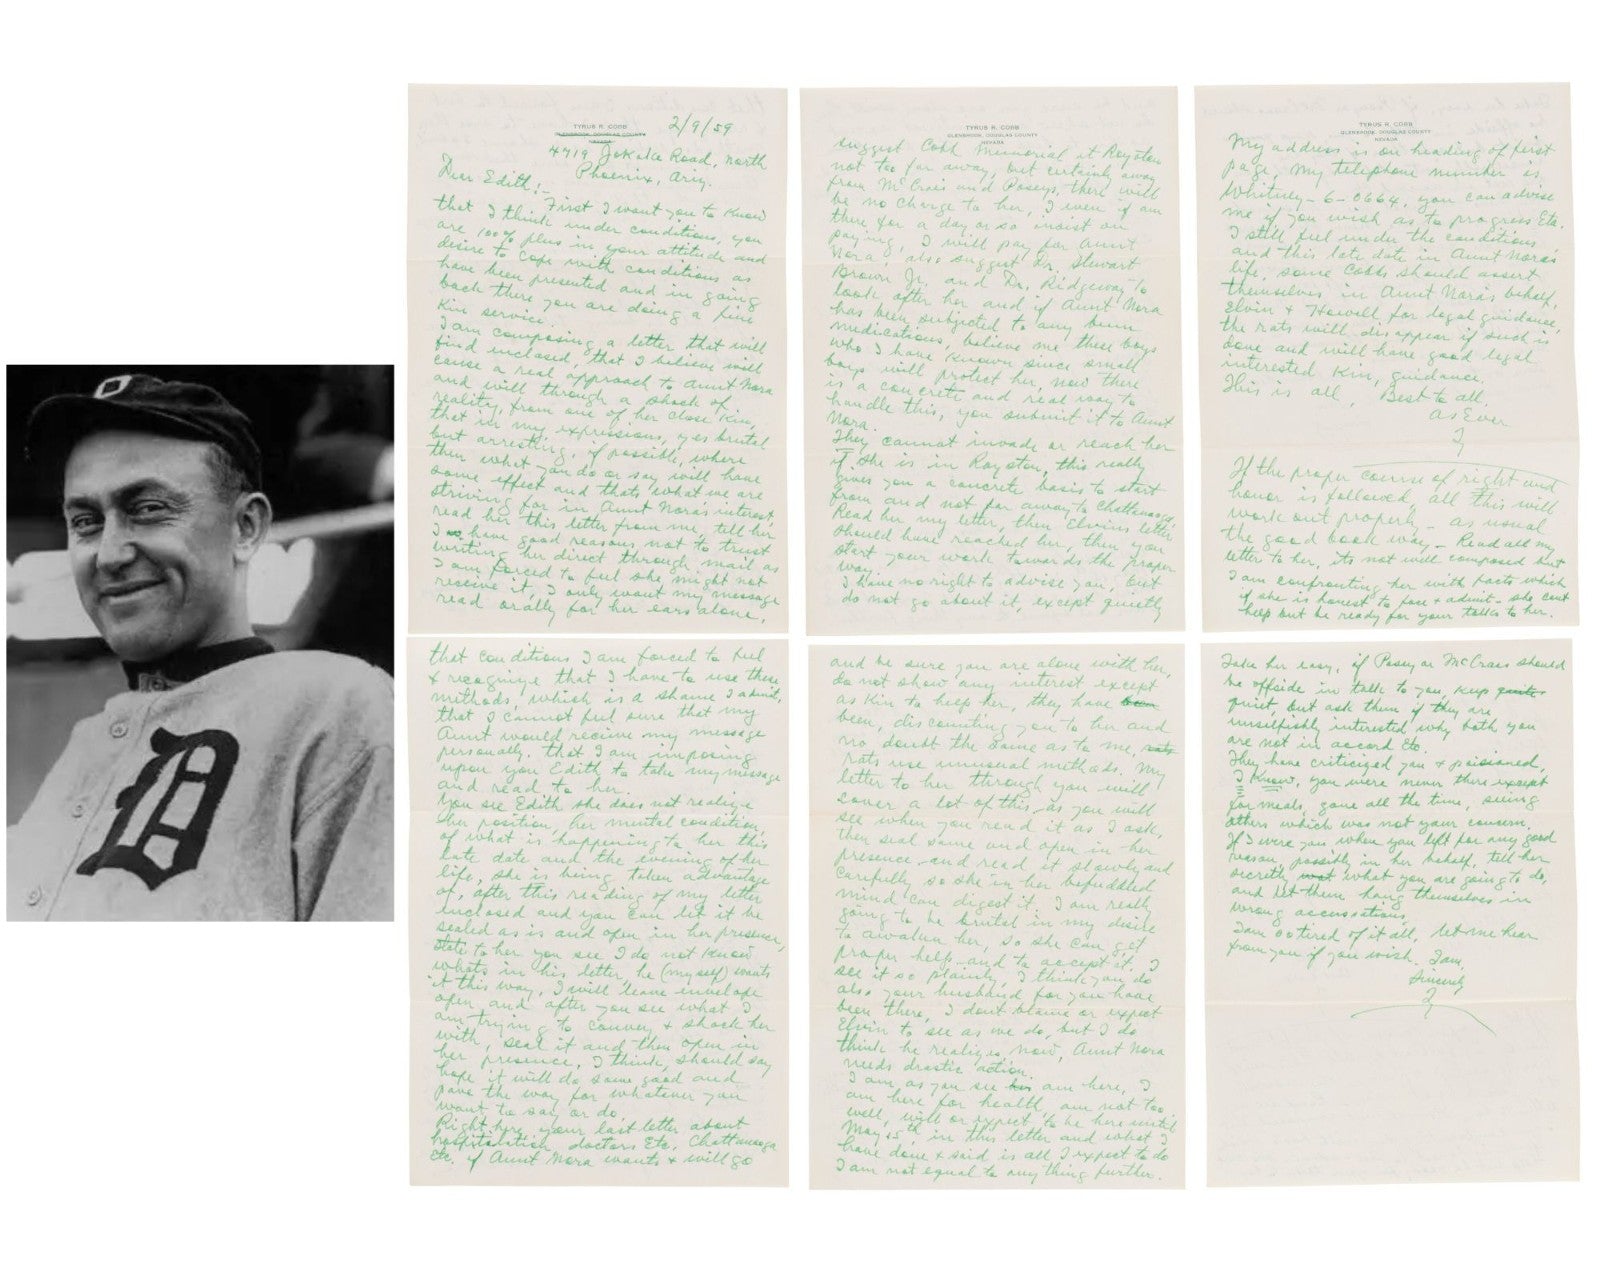 TYRUS R. COBB
GLENBROOK, DOUGLAS COUNTY
NEVADA
2/9/59
4719 Jokake Road, north
Phoenix, Ariz.
Dear Edith:-
First I want you to know
that I think under conditions, you
are 100% plus in your attitude and
desire to cope with conditions as
have been presented and in going
back there you are doing a fine
Kin service.
I am composing a letter that will
find inclosed, that I believe will
cause a real approach to Aunt Nora
and will through a shock of
reality, from one of her close Kin,
that in my expressions, yes brutal
but arresting, if possible, where
then what you do or say will have
some effect and thats what we are
striving for in Aunt Nora's interest,
read her this letter from me, tell her
I have good reasons not to trust
writing her direct through mail as
I am forced to feel she might not
receive it, I only want my message
read orally for her ears alone,
that conditions I am forced to feel
& recognize that I have to use these
methods, which is a shame I admit,
that I cannot feel sure that my
Aunt would receive my message
personally. that I am imposing
upon you Edith to take my message
and read to her.
You see Edith she does not realize
her position, her mental condition,
of what is happening to her this
late date and the evening of her
life, she is being taken advantage
of, after this reading of my letter
inclosed and you can let it be
sealed as is and open in her presence,
state to her you see I do not know
whats in his letter, he (myself) wants
it this way, I will leave envelope
open and after you see what I
am trying to convey & shock her
with, seal it and then open in
her presence, I think, should say
hope it will do some good and
pave the way for whatever you
want to say or do.
Right here your last letter about
hospitalation, doctors Etc. Chattanooga
Etc. if Aunt Nora wants & will go
TYRUS R. COBB
GLENBROOK, DOUGLAS COUNTY
NEVADA
suggest Cobb Memorial at Royston
not too far away, but certainly away
from McCrais and Poseys, there will
be no charge to her, I even if am
there for a day or so insist on
paying, I will pay for Aunt
Nora, also suggest Dr. Stewart
Brown Jr. and Dr. Ridgeway to
look after her and if Aunt Nora
has been subjected to any bum
medications, believe me these boys
who I have known since small
boys will protect her, now there
is a concrete and real way to
handle this, you submit it to Aunt
Nora.
They cannot invade or reach her
if she is in Royston, this really
gives you a concrete basis to start
from and not far away to Chattanooga,
Read her my letter, then Elvins letter
should have reached her, then you
start your work towards the proper
way.
I have no right to advise you, but
do not go about it, except quietly
and be sure you are alone with her,
do not show any interest except
as Kin to help her, they have
been, discounting you to her and
no doubt the same as to me,
rats use unusual methods. My
letter to her through you will
cover a lot of this as you will
see when you read it as I ask,
then seal same and open in her
presence and read it slowly and
carefully so she in her befuddled
mind can digest it. I am really
going to be brutal in my desire
to awaken her, so she can get
proper help and to accept it. I
see it so plainly, I think you do
also your husband for you have
been there, I dont blame or expect
Elvin to see as we do, but I do
think he realizes, now, Aunt Nora
needs drastic action.
I am, as you see am here, I
am here for health, am not too
well, will or expect to be here until
May 15th, in this letter and what I
have done & said is all I expect to do
I am not equal to anything further.
TYRUS R. COBB
GLENBROOK, DOUGLAS COUNTY
NEVADA
My address is on heading of first
page, my telephone number is
Whitney-6-0664, you can advise
me if you wish as to progress Etc.
I still feel under the conditions
and this late date in Aunt Nora's
life, some Cobbs should assert
themselves in Aunt Nora's behalf,
Elvin & Howell for legal guidance,
the rats will disappear if such is
done and will have good legal
interested Kin, guidance.
This is all, Best to all,
As Ever
Ty
If the proper course of right and
honor is followed, all this will
work out properly - as usual
the good book way, - Read all my
letter to her, its not well composed but
I am confronting her with facts which
if she is honest to face & admit - she cant
help but be ready for your talks to her.
Take her easy, if Posey or McCrais should
be offside in talk to you, keep
quiet, but ask them if they are
unselfishly interested why both you
are not in accord Etc.
They have criticized you & poisioned,
I know, you were never there except
for meals, gone all the time, seeing
others which was not your concern.
If I were you when you left for any good
reason, possibly in her behalf, tell her
secretly what you are going to do,
and let them hang themselves in
wrong accusations.
I am so tired of it all, let me hear
from you if you wish. I am,
Sincerely
Ty
D